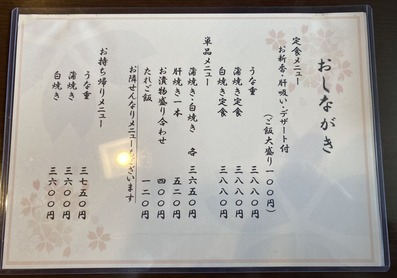 おしながき
定食メニュー
お新香・肝吸い・デザート付
（ご飯大盛り一〇〇円）
うな重 三八八〇円
蒲焼き定食 三八八〇円
白焼き定食 三八八〇円
単品メニュー
蒲焼き・白焼き 各 三六五〇円
肝焼き一本 五二〇円
お漬物盛り合わせ 四〇〇円
たれご飯 一二〇円
お隣せんなりメニューもございます
お持ち帰りメニュー
うな重 三七五〇円
蒲焼き 三六〇〇円
白焼き 三六〇〇円